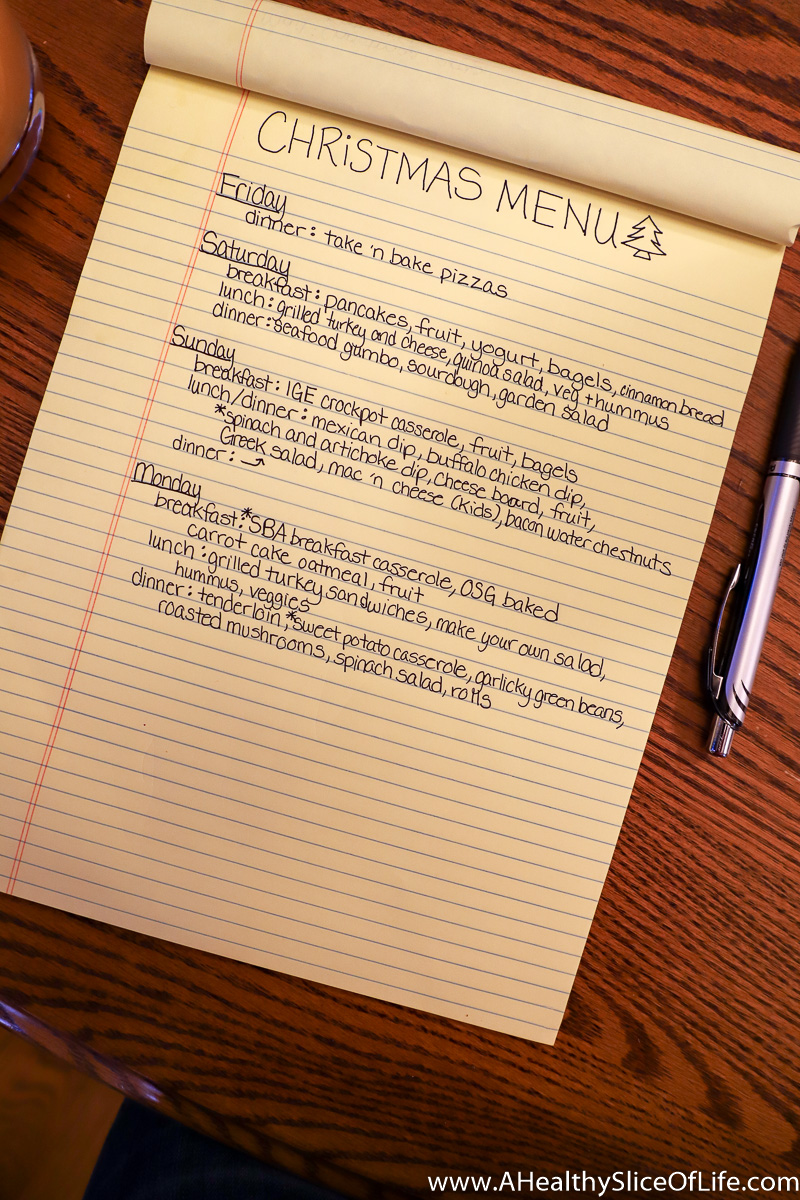 CHRiSTMAS MENU
Friday
dinner: take 'n bake pizzas
Saturday
breakfast: pancakes, fruit, yogurt, bagels, cinnamon bread
lunch: grilled turkey and cheese, quinoa salad, veg + hummus
dinner: seafood gumbo, sourdough, garden salad
Sunday
breakfast: IGE crockpot casserole, fruit, bagels
lunch/dinner: mexican dip, buffalo chicken dip,
*spinach and artichoke dip, cheese board, fruit,
Greek salad, mac 'n cheese (kids), bacon water chestnuts
dinner: ⤴
Monday
breakfast: *SBA breakfast casserole, OSG baked
carrot cake oatmeal, fruit
lunch: grilled turkey sandwiches, make your own salad,
hummus, veggies
dinner: tenderloin, *sweet potato casserole, garlicky green beans,
roasted mushrooms, spinach salad, rolls
www.AHealthySliceOfLife.com